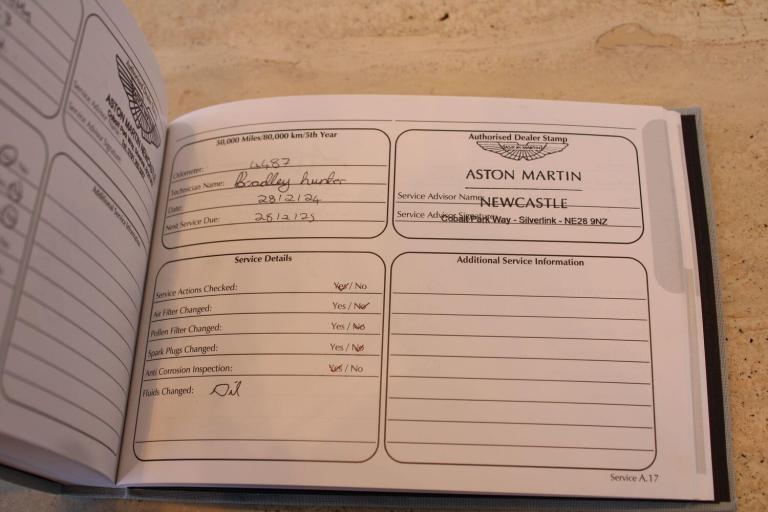 50,000 Miles/80,000 km/5th Year
Odometer: 4487
Technician Name: Bradley hunter
Date: 28/2/24
Next Service Due: 28/2/25
Authorised Dealer Stamp
ASTON MARTIN
ASTON MARTIN
Service Advisor Name:
NEWCASTLE
Service Advisor Signature:
Cobalt Park Way - Silverlink - NE28 9NZ
Service Details
Service Actions Checked: Yes / No
Air Filter Changed: Yes / No
Pollen Filter Changed: Yes / No
Spark Plugs Changed: Yes / No
Anti Corrosion Inspection: Yes / No
Fluids Changed: Oil
Additional Service Information
Service A.17
Service Advisor
Service Advisor Signature:
ASTON MARTIN
Additional Service Information